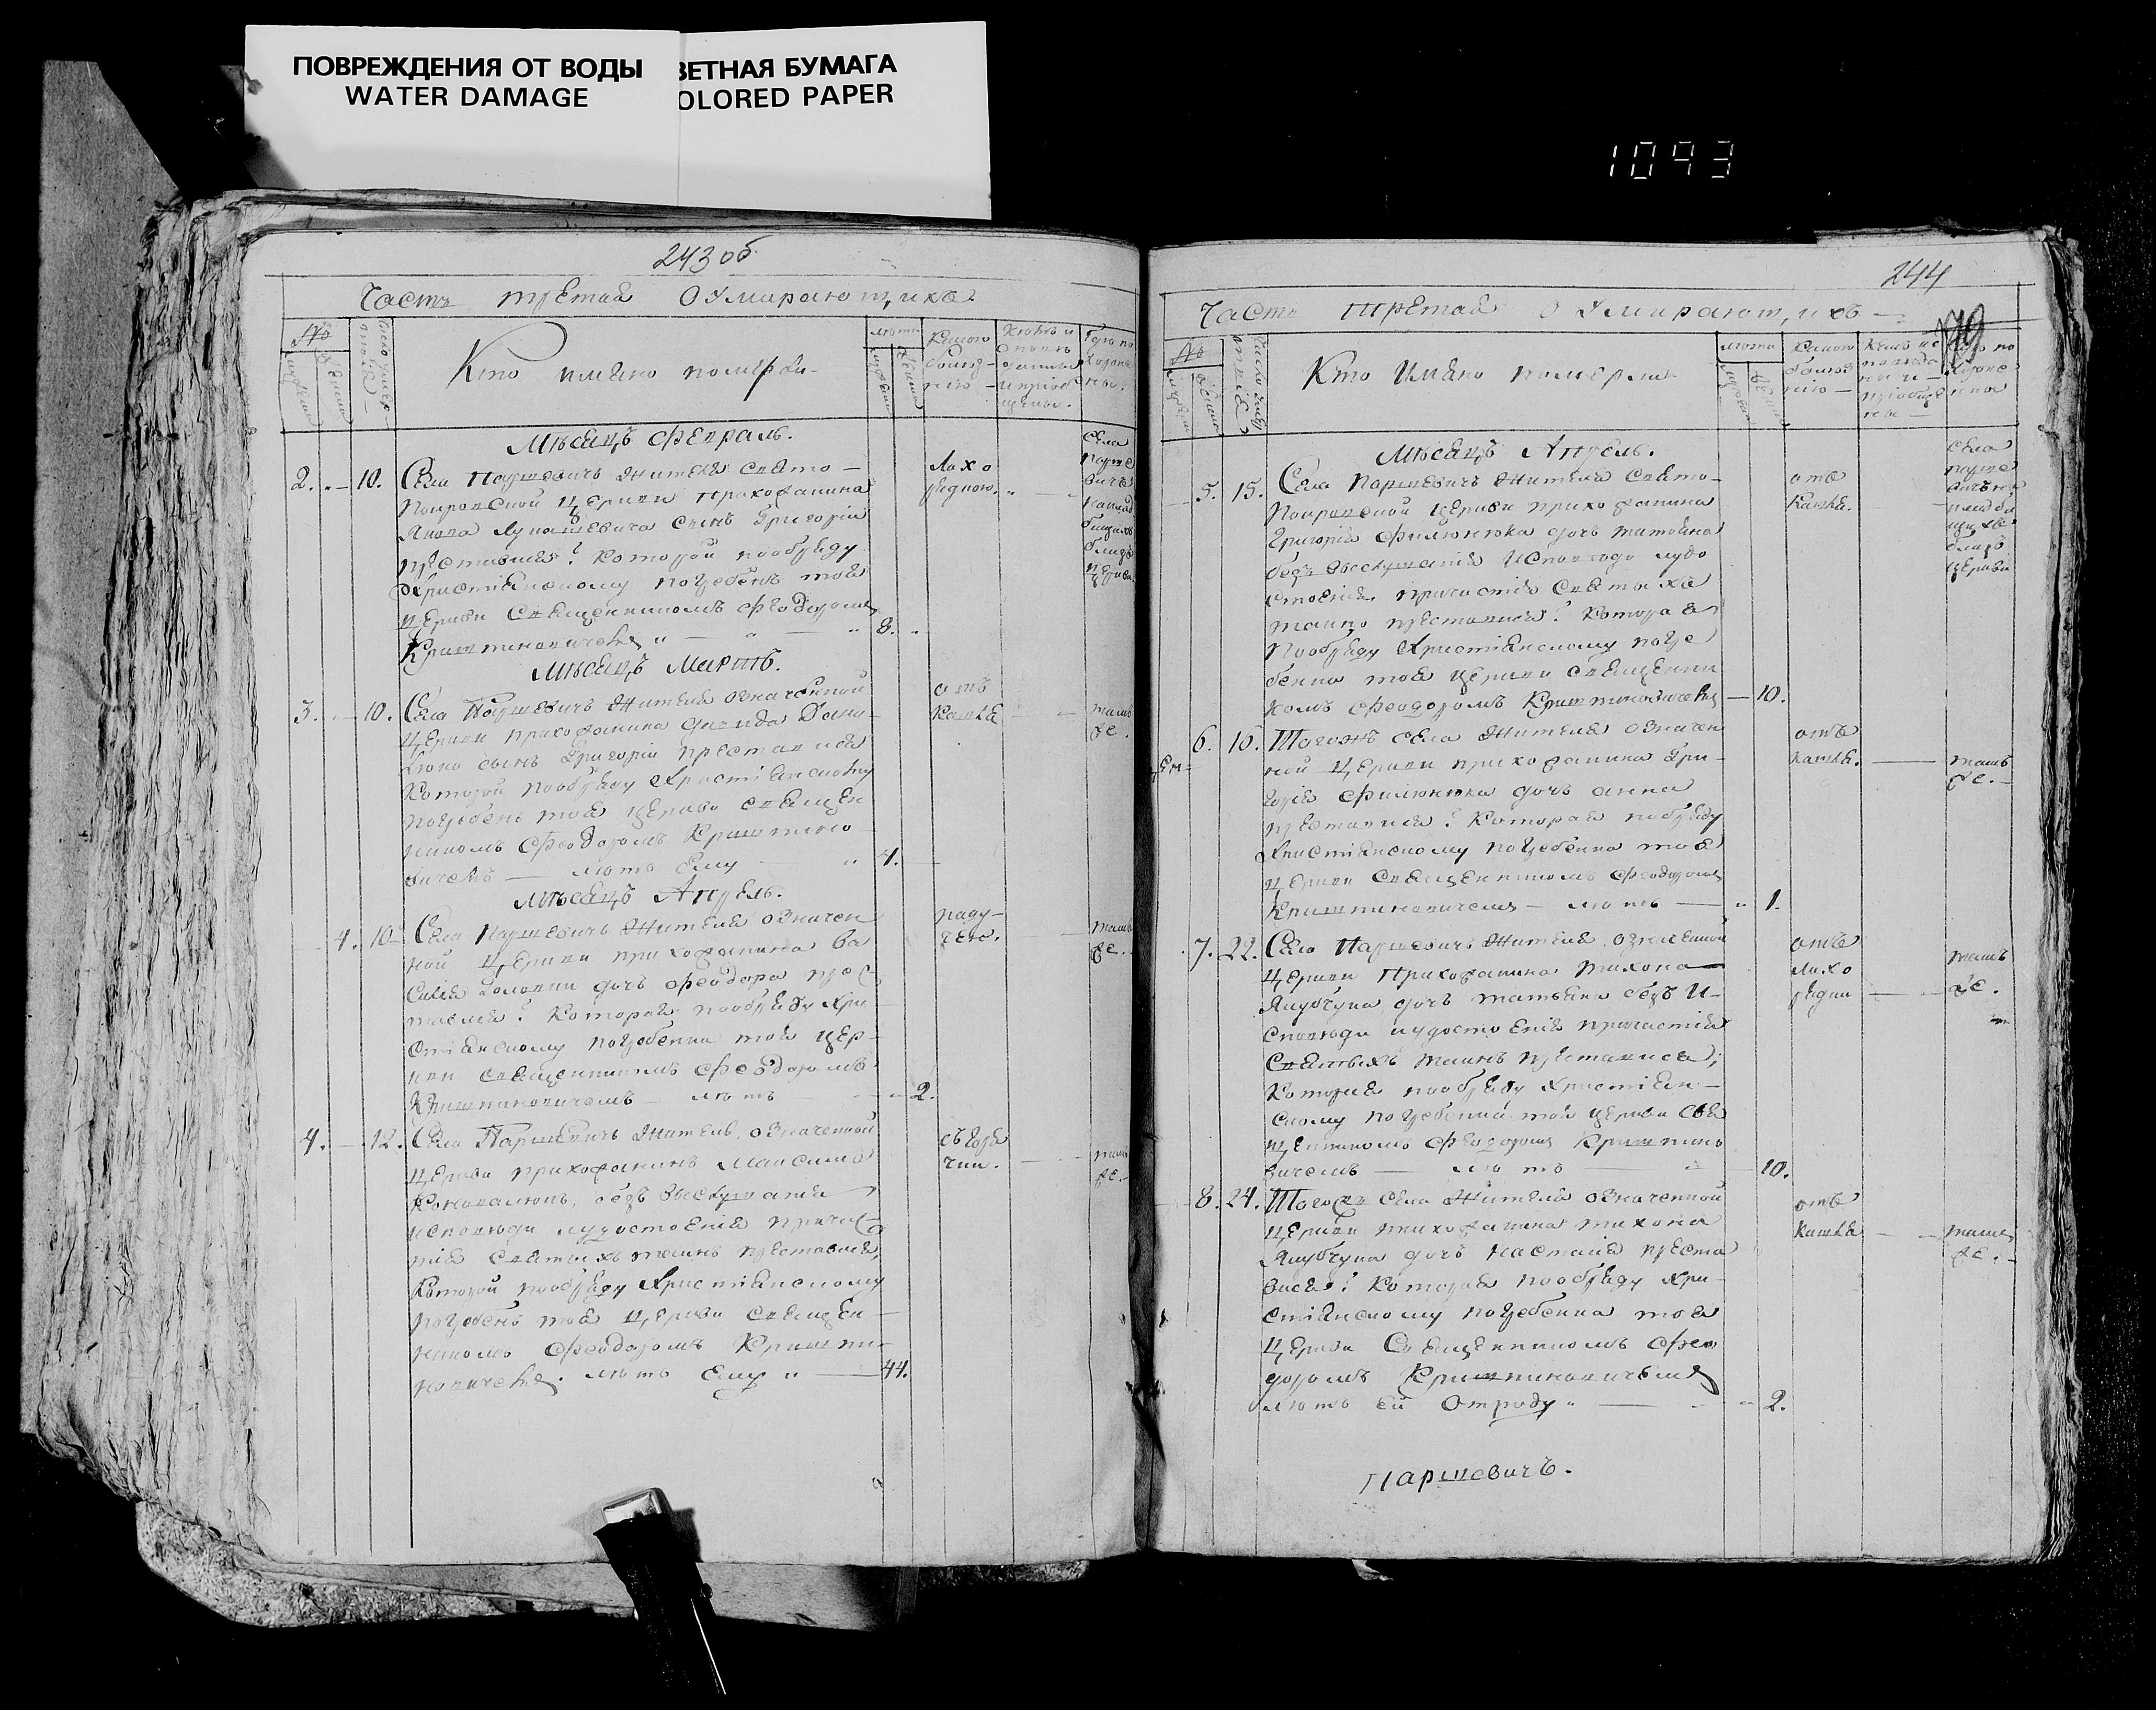 ПОВРЕЖДЕНИЯ ОТ ВОДЫ
WATER DAMAGE
ВЕТНАЯ БУМАГА
OLORED PAPER
1093
243 об
Часть третая О Умирающихъ.
№
Кто имяно померли
Лѣта
Мѣсяцъ Февраль.
2. 10. Села Паршевичъ Жителя Свято-
Покровской Церкви Прихожанина
сынъ Григорій
преставися: Которой пообряду
Христіянскому погребенъ тоя
Церкви Священникомъ Феодоромъ
Криштиновичемъ 8.
Лихо
радкою.
Села
Парше
вичъ
близъ
церкви
Мѣсяцъ Мартъ.
3. 10. Села Паршевичъ Жителя Означенной
Церкви прихожанина Давида Дани-
люка сынъ Григорій преставися
Которой пообряду Христіянскому
погребенъ тоя Церкви Священ
никомъ Феодоромъ Криштино
вичемъ лѣтъ Ему 4.
отъ
Кашля
тамъ
же.
Мѣсяцъ Апрель.
4. 10. Села Паршевичъ Жителя Означен
ной Церкви прихожанина Ва
силія дочь Феодора пре
ставися: Которая пообряду Хри
стіянскому погребенна тоя Цер-
кви Священникомъ Феодоромъ
Криштиновичемъ лѣтъ 2.
паду-
чею.
тамъ
же.
4. 12. Села Паршевичъ Житель означенной
Церкви прихожанинъ Максимъ
Коновалюкъ, безъ Выслушания
исповѣди иудостоенія причас
тія Святыхъ таинъ преставися,
Которой пообряду Христіянскому
погребенъ тоя Церкви Священ
никомъ Феодоромъ Кришти-
новичемъ. лѣтъ Ему 44.
съ горя
чки.
тамъ
же.
244
79
Часть третая О Умирающихъ
№
Кто Имяно померли
Лѣта
Мѣсяцъ Апрель.
5. 15. Села Паршевичъ Жителя Свято-
Покровской Церкви прихожанина
Григорія Филюнюка дочь Татьяна
безъ Выслушания Исповѣди иудо
стоенія причастія Святыхъ
таинъ преставися: Которая
Пообряду Христіянскому погре
бенна тоя Церкви Священни
комъ Феодоромъ Криштиновичемъ 10.
отъ
Кашля.
Села
Парше
вичъ на
клади
щахъ
близъ
Церкви
6. 16. Тогожъ села Жителя Означен
ной Церкви прихожанина Гри-
горія Филюнюка дочь анна
преставися: Которая пообряду
Христіянскому погребенна тоя
Церкви Священникомъ Феодоромъ
Криштиновичемъ лѣтъ 1.
отъ
кашля.
тамъ
же.
7. 22. Села Паршевичъ Жителя Означенной
Церкви Прихожанина Тихона
Якубчука дочь Татьяна безъ И-
сповѣди иудостоенія причастія
Святыхъ таинъ преставися;
Которая пообряду Христіян-
скому погребенна тоя Церкви Свя
щенникомъ Феодоромъ Криштино
вичемъ лѣтъ 10.
отъ
лихо
радки
тамъ
же.
8. 24. Тогожъ Села Жителя Означенной
Церкви прихожанина тихона
Якубчука дочь Настасія преста
вися: Которая пообряду Хри-
стіянскому погребенна тоя
Церкви Священникомъ Фео
доромъ Криштиновичемъ
лѣтъ ей Отроду 2.
отъ
Кашля
тамъ
же.
Паршевичъ.